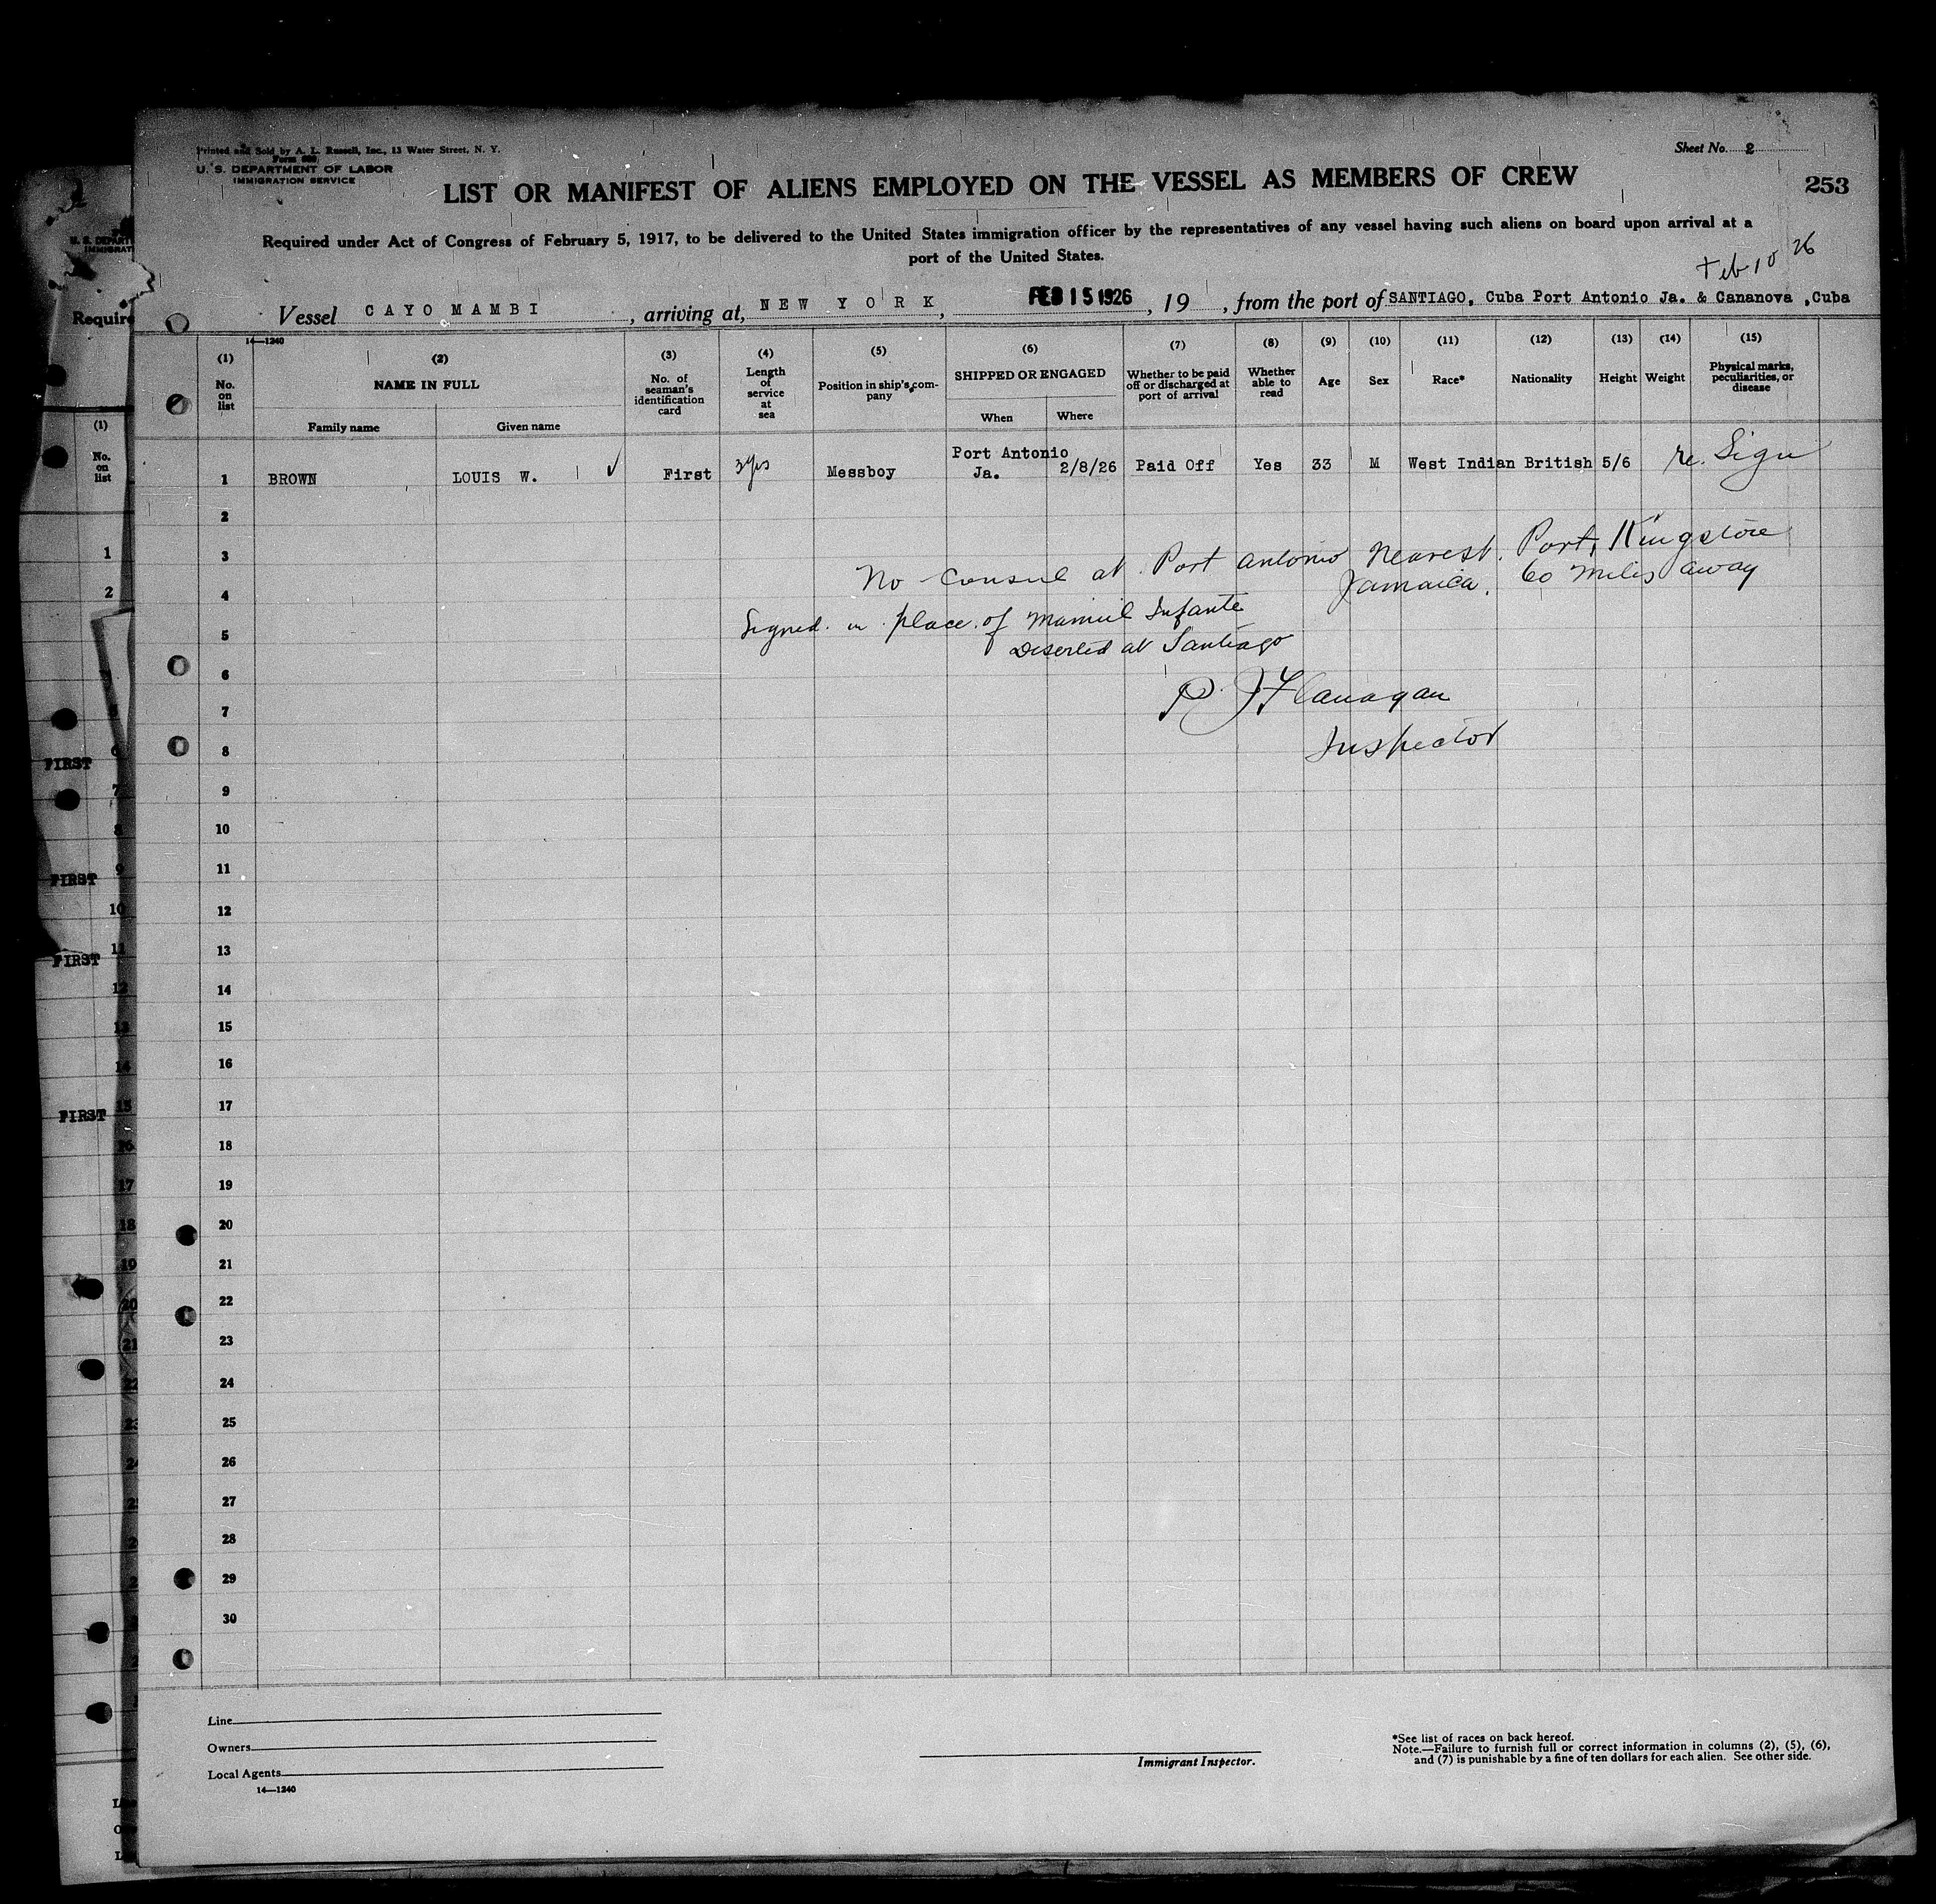 Printed and Sold by A. L. Russell, Inc., 13 Water Street, N. Y.
Form 689
U. S. DEPARTMENT OF LABOR
IMMIGRATION SERVICE
Sheet No. 2
LIST OR MANIFEST OF ALIENS EMPLOYED ON THE VESSEL AS MEMBERS OF CREW
253
Required under Act of Congress of February 5, 1917, to be delivered to the United States immigration officer by the representatives of any vessel having such aliens on board upon arrival at a
port of the United States.
Feb 10 26
Vessel CAYO MAMBI, arriving at, NEW YORK, FEB 15 1926, 19, from the port of SANTIAGO, Cuba Port Antonio Ja. & Cananova, Cuba
14—1240
(1) (2) (3) (4) (5) (6) (7) (8) (9) (10) (11) (12) (13) (14) (15)
No. on list NAME IN FULL No. of seaman's identification card Length of service at sea Position in ship's company SHIPPED OR ENGAGED Whether to be paid off or discharged at port of arrival Whether able to read Age Sex Race* Nationality Height Weight Physical marks, peculiarities, or disease
Family name Given name When Where
1 BROWN LOUIS W. ✓ First 3yrs Messboy Port Antonio Ja. 2/8/26 Paid Off Yes 33 M West Indian British 5/6 re. Sign
2
3 No Consul at Port Antonio Nearest Port, Kingstone
4 Jamaica. 60 miles away
5 Signed in place of Manuel Infante
Deserted at Santiago
6
7 P. J Flanagan
8 Inspector
9
10
11
12
13
14
15
16
17
18
19
20
21
22
23
24
25
26
27
28
29
30
Line
Owners
Local Agents
14—1240
Immigrant Inspector.
*See list of races on back hereof.
Note.—Failure to furnish full or correct information in columns (2), (5), (6),
and (7) is punishable by a fine of ten dollars for each alien. See other side.
Require
(1)
No.
on
list
1
2
FIRST
FIRST
FIRST
FIRST